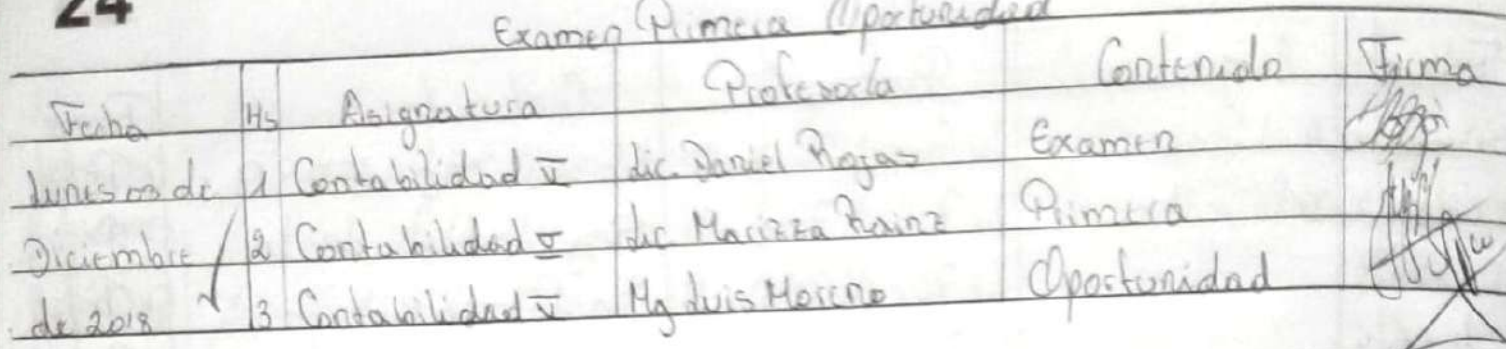 24
Examen Primera Oportunidad
Fecha Hs Asignatura Profesor/a Contenido Firma
Lunes 03 de 1 Contabilidad V Lic. Daniel Rojas Examen
Diciembre 2 Contabilidad V Lic Marizza Primera
de 2018 3 Contabilidad V Mg Luis Moreno Oportunidad